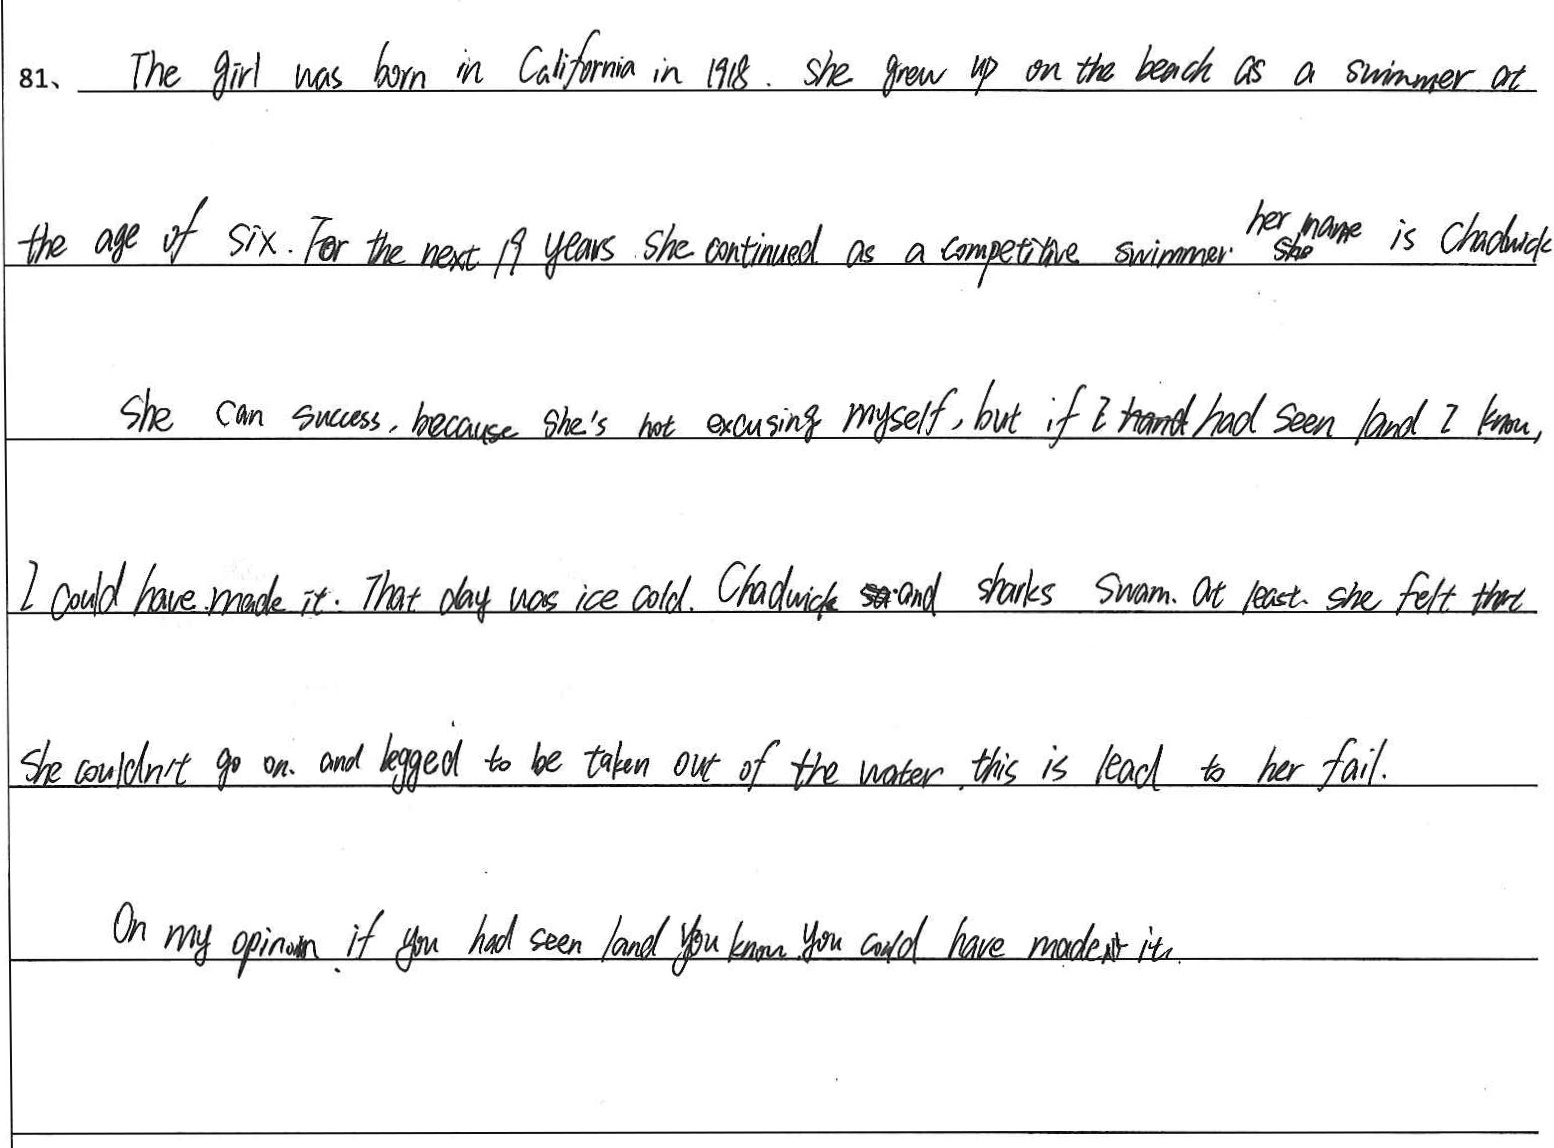 81、 The girl was born in California in 1918. she grew up on the beach as a swimmer at
the age of six. For the next 19 years she continued as a competitive swimmer. her name is Chadwick
She can success, because she's not excusing myself, but if I had seen land I know,
I could have made it. That day was ice cold. Chadwick and sharks swam. At least she felt that
she couldn't go on. and begged to be taken out of the water, this is lead to her fail.
On my opinion, if you had seen land you know you could have made it.